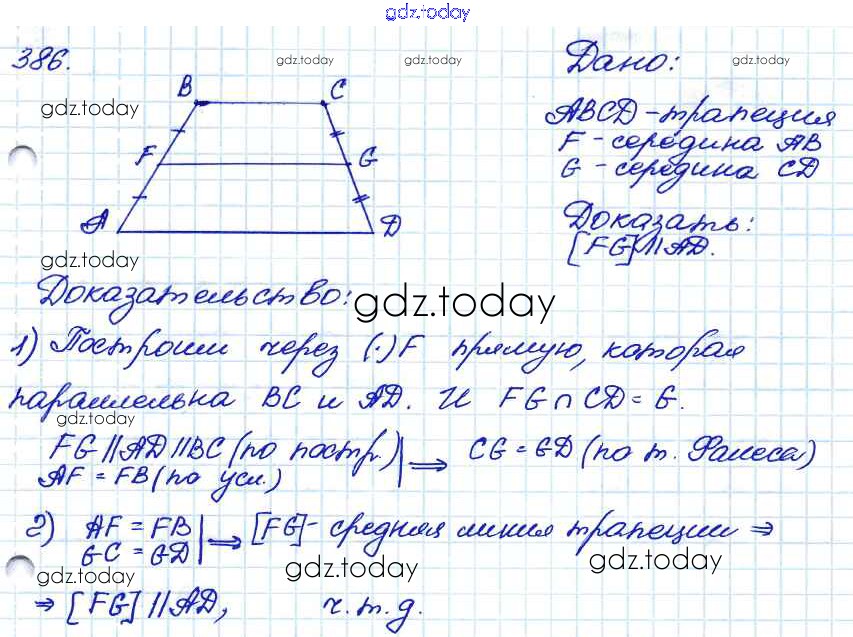 gdz.today
386.
gdz.today
gdz.today
gdz.today
Дано:
B
C
gdz.today
ABCD - трапеция
F - середина AB
F
G
G - середина CD
A
D
Доказать:
[FG] || AD.
gdz.today
Доказательство:
gdz.today
1) Построим через (·) F прямую, которая
параллельна BC и AD. И FG ∩ CD = G.
gdz.today
FG || AD || BC (по постр.) | ⇒ CG = GD (по т. Фалеса)
AF = FB (по усл.)
2) AF = FB | ⇒ [FG] - средняя линия трапеции ⇒
GC = GD
gdz.today
gdz.today
gdz.today
⇒ [FG] || AD, ч.т.д.